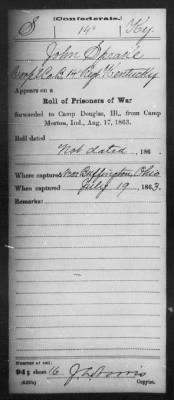 (Confederate.)
S 14 Ky
John Spears
Corpl Co B 14 Reg. Kentucky
Appears on a
Roll of Prisoners of War
forwarded to Camp Douglas, Ill., from Camp
Morton, Ind., Aug. 17, 1863.
Roll dated
Not dated , 186 .
Where captured Near Buffington, Ohio
When captured July 19 , 1863.
Remarks:
Number of roll:
sheet 16
Copyist.